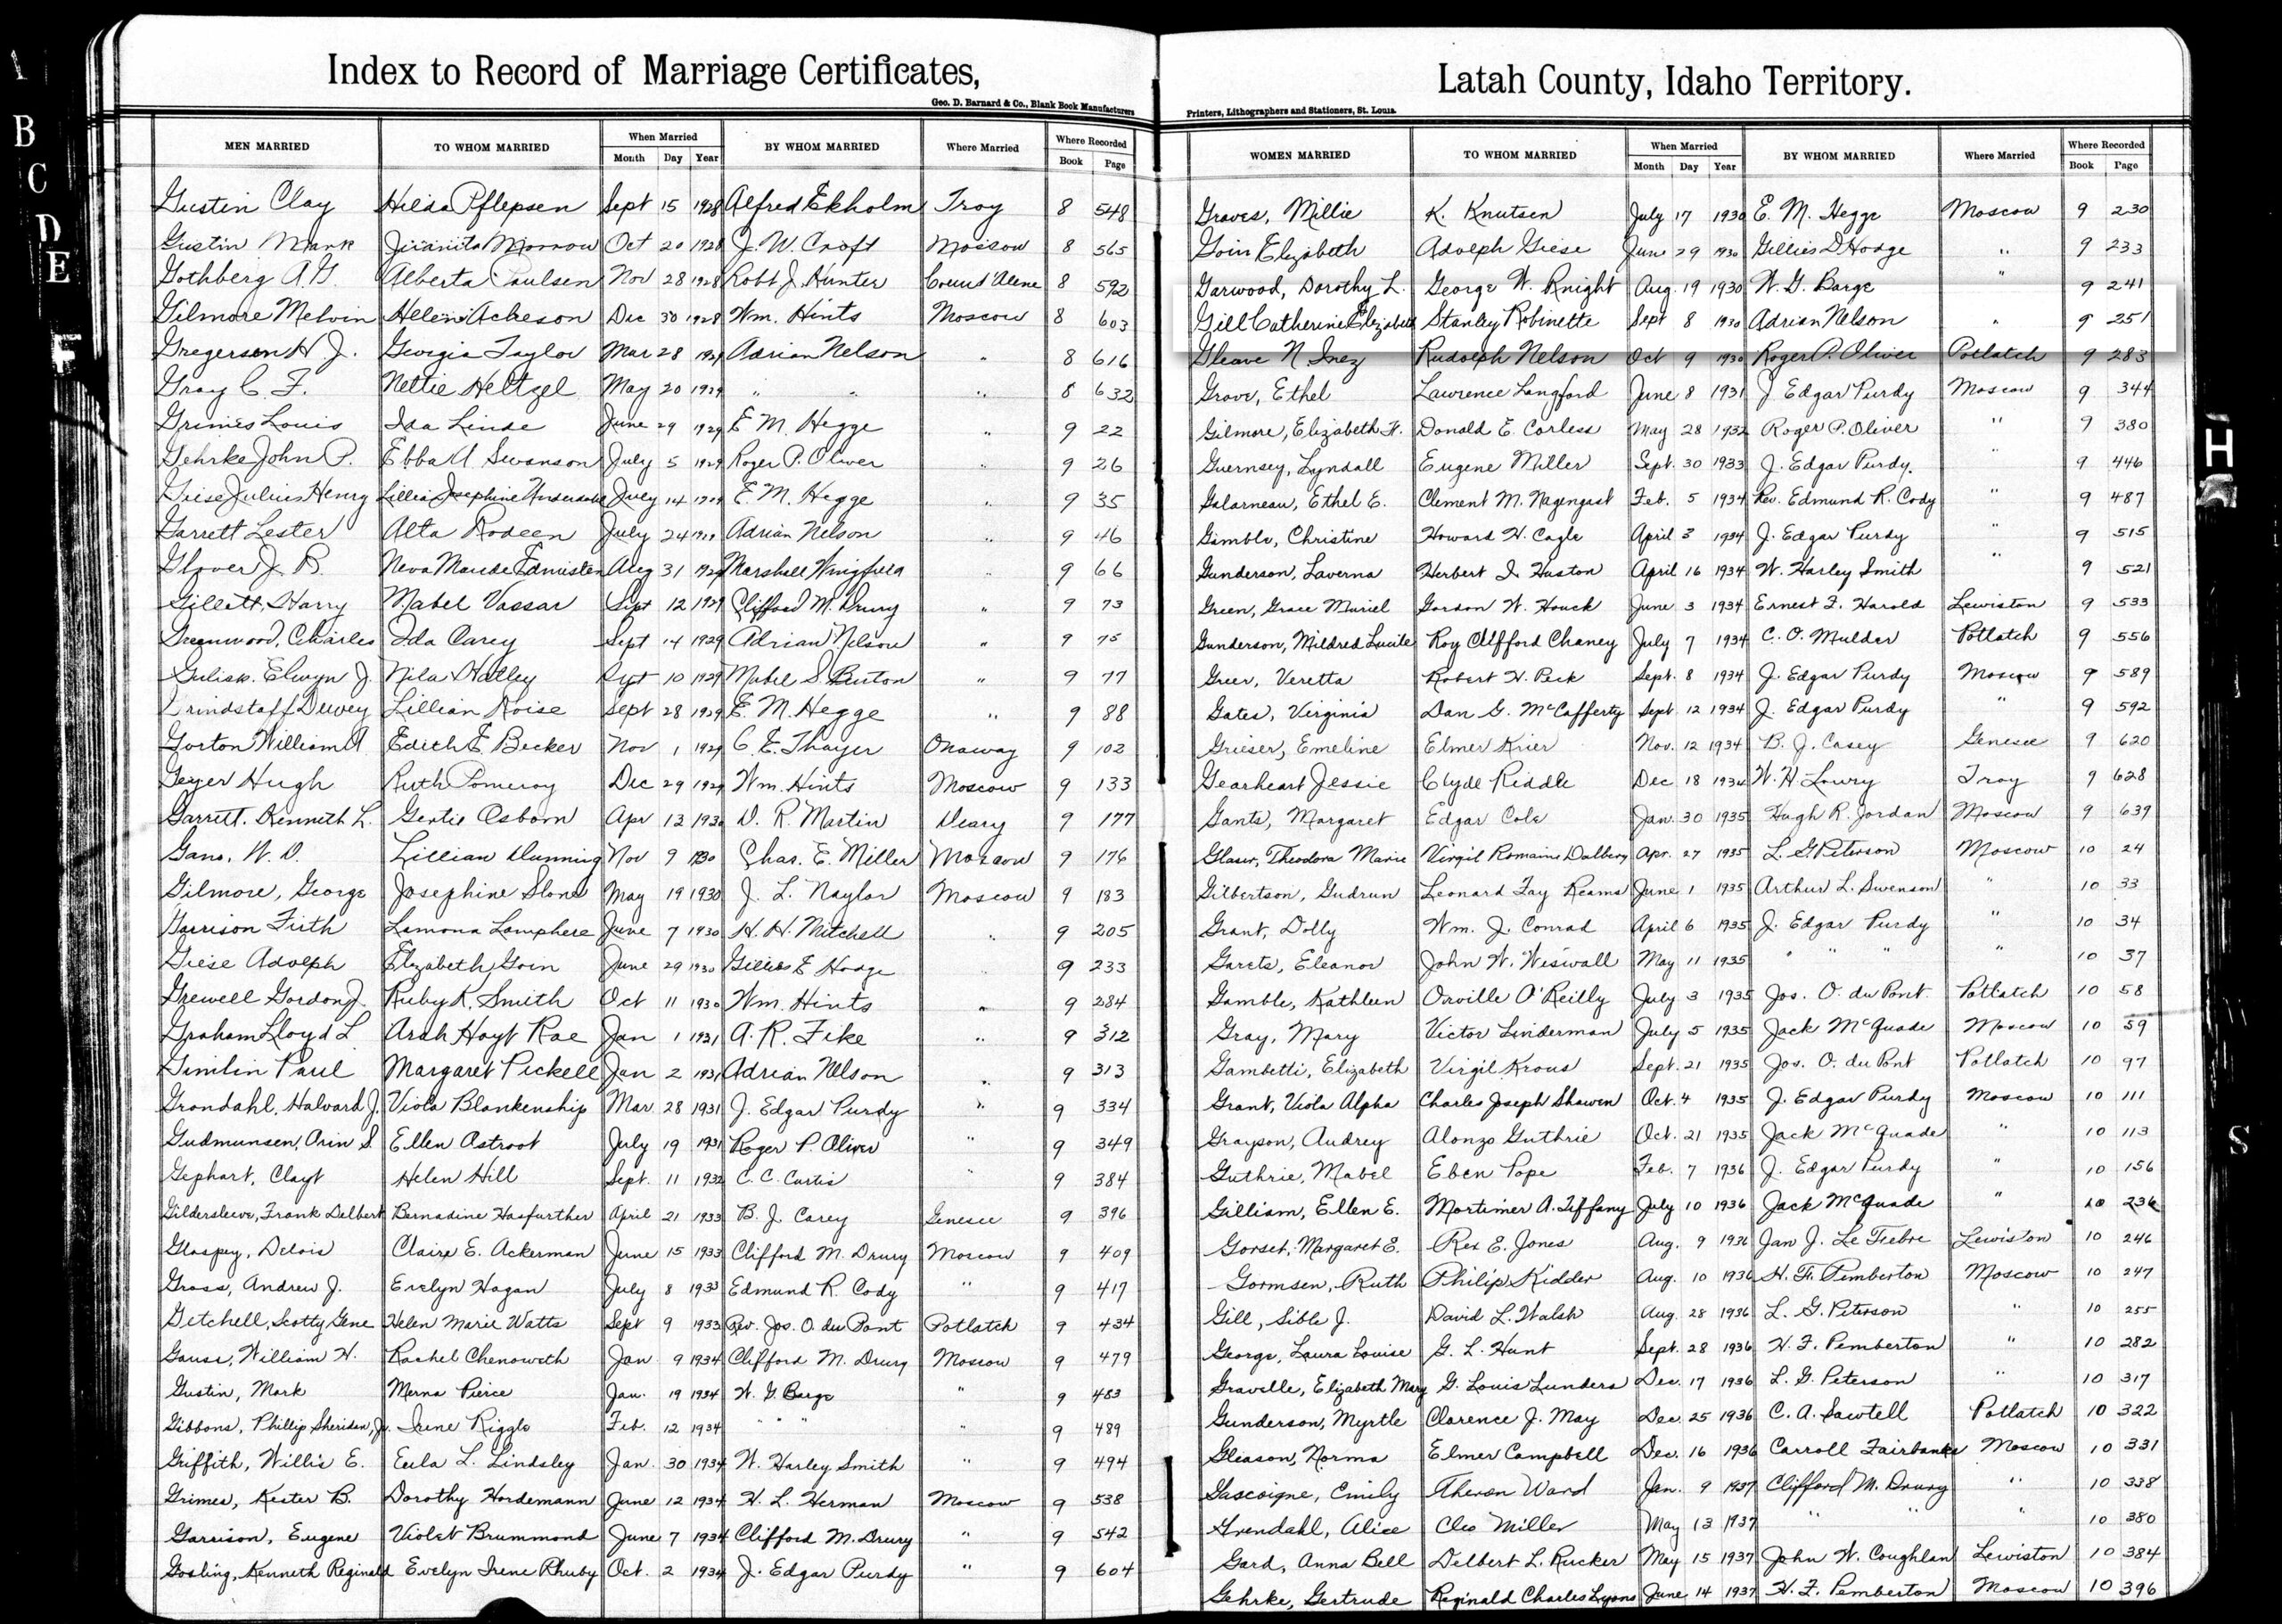 Index to Record of Marriage Certificates,
Geo. D. Barnard & Co., Blank Book Manufacturers
MEN MARRIED TO WHOM MARRIED When Married Month Day Year BY WHOM MARRIED Where Married Where Recorded Book Page
Gustin Clay Hilda Pflepsen Sept 15 1928 Alfred Ekholm Troy 8 548
Gustin Mark Juanita Morrow Oct 20 1928 J. W. Croft Moscow 8 565
Gothberg A. G. Alberta Paulsen Nov 28 1928 Robt J. Hunter Coeur d'Alene 8 592
Gilmore Melvin Helen Acheson Dec 30 1928 Wm. Hints Moscow 8 603
Gregersen H J. Georgia Taylor Mar 28 1929 Adrian Nelson " 8 616
Gray C. F. Nettie Heltzel May 20 1929 " " " 8 632
Grimes Louis Ida Linde June 29 1929 E. M. Hegge " 9 22
Gehrke John P. Ebba U Swanson July 5 1929 Roger P. Oliver " 9 26
Giese Julius Henry Lillie Josephine July 14 1929 E. M. Hegge " 9 35
Garrett Lester Alta Rodeen July 24 1929 Adrian Nelson " 9 46
Glover J. B. Neva Maude Edmisten Aug 31 1929 Marshall Wingfield " 9 66
Gillett, Harry Mabel Vassar Sept 12 1929 Clifford M. Drury " 9 73
Greenwood, Charles Ida Carey Sept 14 1929 Adrian Nelson " 9 75
Gulisk. Elwyn J. Nila Halley Sept 10 1929 Mabel S. Buton " 9 77
Grindstaff Dewey Lillian Roise Sept 28 1929 E. M. Hegge " 9 88
Gorton William A Edith E Becker Nov 1 1929 C. E. Thayer Onaway 9 102
Geyer Hugh Ruth Pomeroy Dec 29 1929 Wm. Hints Moscow 9 133
Garrett. Kenneth L. Gertie Osborn Apr 13 1930 D. R. Martin Deary 9 177
Gano, W. D. Lillian Dunning Nov 9 1930 Chas. E. Miller Moscow 9 176
Gilmore, George Josephine Slone May 19 1930 J. L. Naylor Moscow 9 183
Garrison Firth Lamona Lamphere June 7 1930 H. H. Mitchell " 9 205
Giese Adolph Elizabeth Goin June 29 1930 Gillies E Hodge " 9 233
Grewell Gordon J. Ruby K. Smith Oct 11 1930 Wm. Hints " 9 284
Graham Lloyd L Arah Hoyt Rae Jan 1 1931 A. R. Fike " 9 312
Gimlin Paul Margaret Pickell Jan 2 1931 Adrian Nelson " 9 313
Grondahl, Halvard J. Viola Blankenship Mar. 28 1931 J. Edgar Purdy " 9 334
Gudmunsen, Orin S. Ellen Astroot July 19 1931 Roger P. Oliver " 9 349
Gephart, Clayt Helen Hill Sept. 11 1932 C. C. Curtis " 9 384
Gildersleeve, Frank Delbert Bernadine Hasfurther April 21 1933 B. J. Carey Genesee 9 396
Glaspey, Delois Claire E. Ackerman June 15 1933 Clifford M. Drury Moscow 9 409
Grass, Andrew J. Evelyn Hagan July 8 1933 Edmund R. Cody " 9 417
Getchell, Scotty Gene Helen Marie Watts Sept 9 1933 Rev. Jos. O. du Pont Potlatch 9 434
Gauss, William H. Rachel Chenoweth Jan 9 1934 Clifford M. Drury Moscow 9 479
Gustin, Mark Merna Pierce Jan. 19 1934 W. G. Barge " 9 483
Gibbons, Phillip Sheridan, Jr. Irene Riggle Feb. 12 1934 " " " " 9 489
Griffith, Willis E. Eula L. Lindsley Jan. 30 1934 W. Harley Smith " 9 494
Grimes, Kester B. Dorothy Hordemann June 12 1934 H. L. Herman Moscow 9 538
Garrison, Eugene Violet Brummond June 7 1934 Clifford M. Drury " 9 542
Gosling, Kenneth Reginald Evelyn Irene Rhuby Oct. 2 1934 J. Edgar Purdy " 9 604
Latah County, Idaho Territory.
Printers, Lithographers and Stationers, St. Louis.
WOMEN MARRIED TO WHOM MARRIED When Married Month Day Year BY WHOM MARRIED Where Married Where Recorded Book Page
Graves, Millie K. Knutsen July 17 1930 E. M. Hegge Moscow 9 230
Goin Elizabeth Adolph Giese June 29 1930 Gillies D Hodge " 9 233
Garwood, Dorothy L. George W. Knight Aug. 19 1930 W. G. Barge " 9 241
Gill Catherine Elizabeth Stanley Robinette Sept 8 1930 Adrian Nelson " 9 251
Gleave N Inez Rudolph Nelson Oct 9 1930 Roger P. Oliver Potlatch 9 283
Grove, Ethel Lawrence Langford June 8 1931 J Edgar Purdy Moscow 9 344
Gilmore, Elizabeth H. Donald E. Corless May 28 1932 Roger P. Oliver " 9 380
Guernsey, Lyndall Eugene Miller Sept. 30 1933 J. Edgar Purdy. " 9 446
Galarneau, Ethel E. Clement M. Nagengast Feb. 5 1934 Rev. Edmund R. Cody " 9 487
Gamble, Christine Howard H. Cagle April 3 1934 J. Edgar Purdy " 9 515
Gunderson, Laverna Herbert I. Huston April 16 1934 W. Harley Smith " 9 521
Green, Grace Muriel Gordon W. Houck June 3 1934 Ernest F. Harold Lewiston 9 533
Gunderson, Mildred Lucile Roy Clifford Chaney July 7 1934 C. O. Mulder Potlatch 9 556
Greer, Veretta Robert H. Peck Sept. 8 1934 J. Edgar Purdy Moscow 9 589
Gates, Virginia Dan G. McCafferty Sept. 12 1934 J. Edgar Purdy " 9 592
Grieser, Emeline Elmer Krier Nov. 12 1934 B. J. Casey Genesee 9 620
Gearheart Jessie Clyde Riddle Dec 18 1934 W. H Lowry Troy 9 628
Gants, Margaret Edgar Cole Jan. 30 1935 Hugh R. Jordan Moscow 9 639
Glaser, Theodora Marie Virgil Romaine Dalberg Apr. 27 1935 L. G Peterson Moscow 10 24
Gilbertson, Gudrun Leonard Fay Reams June 1 1935 Arthur L. Swenson " 10 33
Grant, Dolly Wm. J. Conrad April 6 1935 J. Edgar Purdy " 10 34
Garets, Eleanor John W. Wiswall May 11 1935 " " " " 10 37
Gamble, Kathleen Orville O'Reilly July 3 1935 Jos. O. du Pont. Potlatch 10 58
Gray, Mary Victor Linderman July 5 1935 Jack McQuade Moscow 10 59
Gambetti, Elizabeth Virgil Krous Sept. 21 1935 Jos. O. du Pont Potlatch 10 97
Grant, Viola Alpha Charles Joseph Shawen Oct. 4 1935 J. Edgar Purdy Moscow 10 111
Grayson, Audrey Alonzo Guthrie Oct. 21 1935 Jack McQuade " 10 113
Guthrie, Mabel Eben Pope Feb. 7 1936 J. Edgar Purdy " 10 156
Gilliam, Ellen E. Mortimer A. Tiffany July 10 1936 Jack McQuade " 10 236
Gorset, Margaret E. Rex E. Jones Aug. 9 1936 Jan J. Le Febre Lewiston 10 246
Gormsen, Ruth Philip Kidder Aug. 10 1936 H. F. Pemberton Moscow 10 247
Gill, Sible J. David L. Walsh Aug. 28 1936 L. G. Peterson " 10 255
George, Laura Louise G. L. Hunt Sept. 28 1936 H. F. Pemberton " 10 282
Gravelle, Elizabeth Mary G. Louis Lunders Dec. 17 1936 L. G. Peterson " 10 317
Gunderson, Myrtle Clarence J. May Dec. 25 1936 C. A. Sawtell Potlatch 10 322
Gleason, Norma Elmer Campbell Dec. 16 1936 Carroll Fairbanks Moscow 10 331
Gascoigne, Emily Theron Ward Jan. 9 1937 Clifford M. Drury " 10 338
Grendahl, Alice Cleo Miller May 13 1937 " " " 10 380
Gard, Anna Bell Delbert L. Rucker May 15 1937 John W. Coughlan Lewiston 10 384
Gehrke, Gertrude Reginald Charles Lyons June 14 1937 H. F. Pemberton Moscow 10 396
B
C
D
E
F
H
S